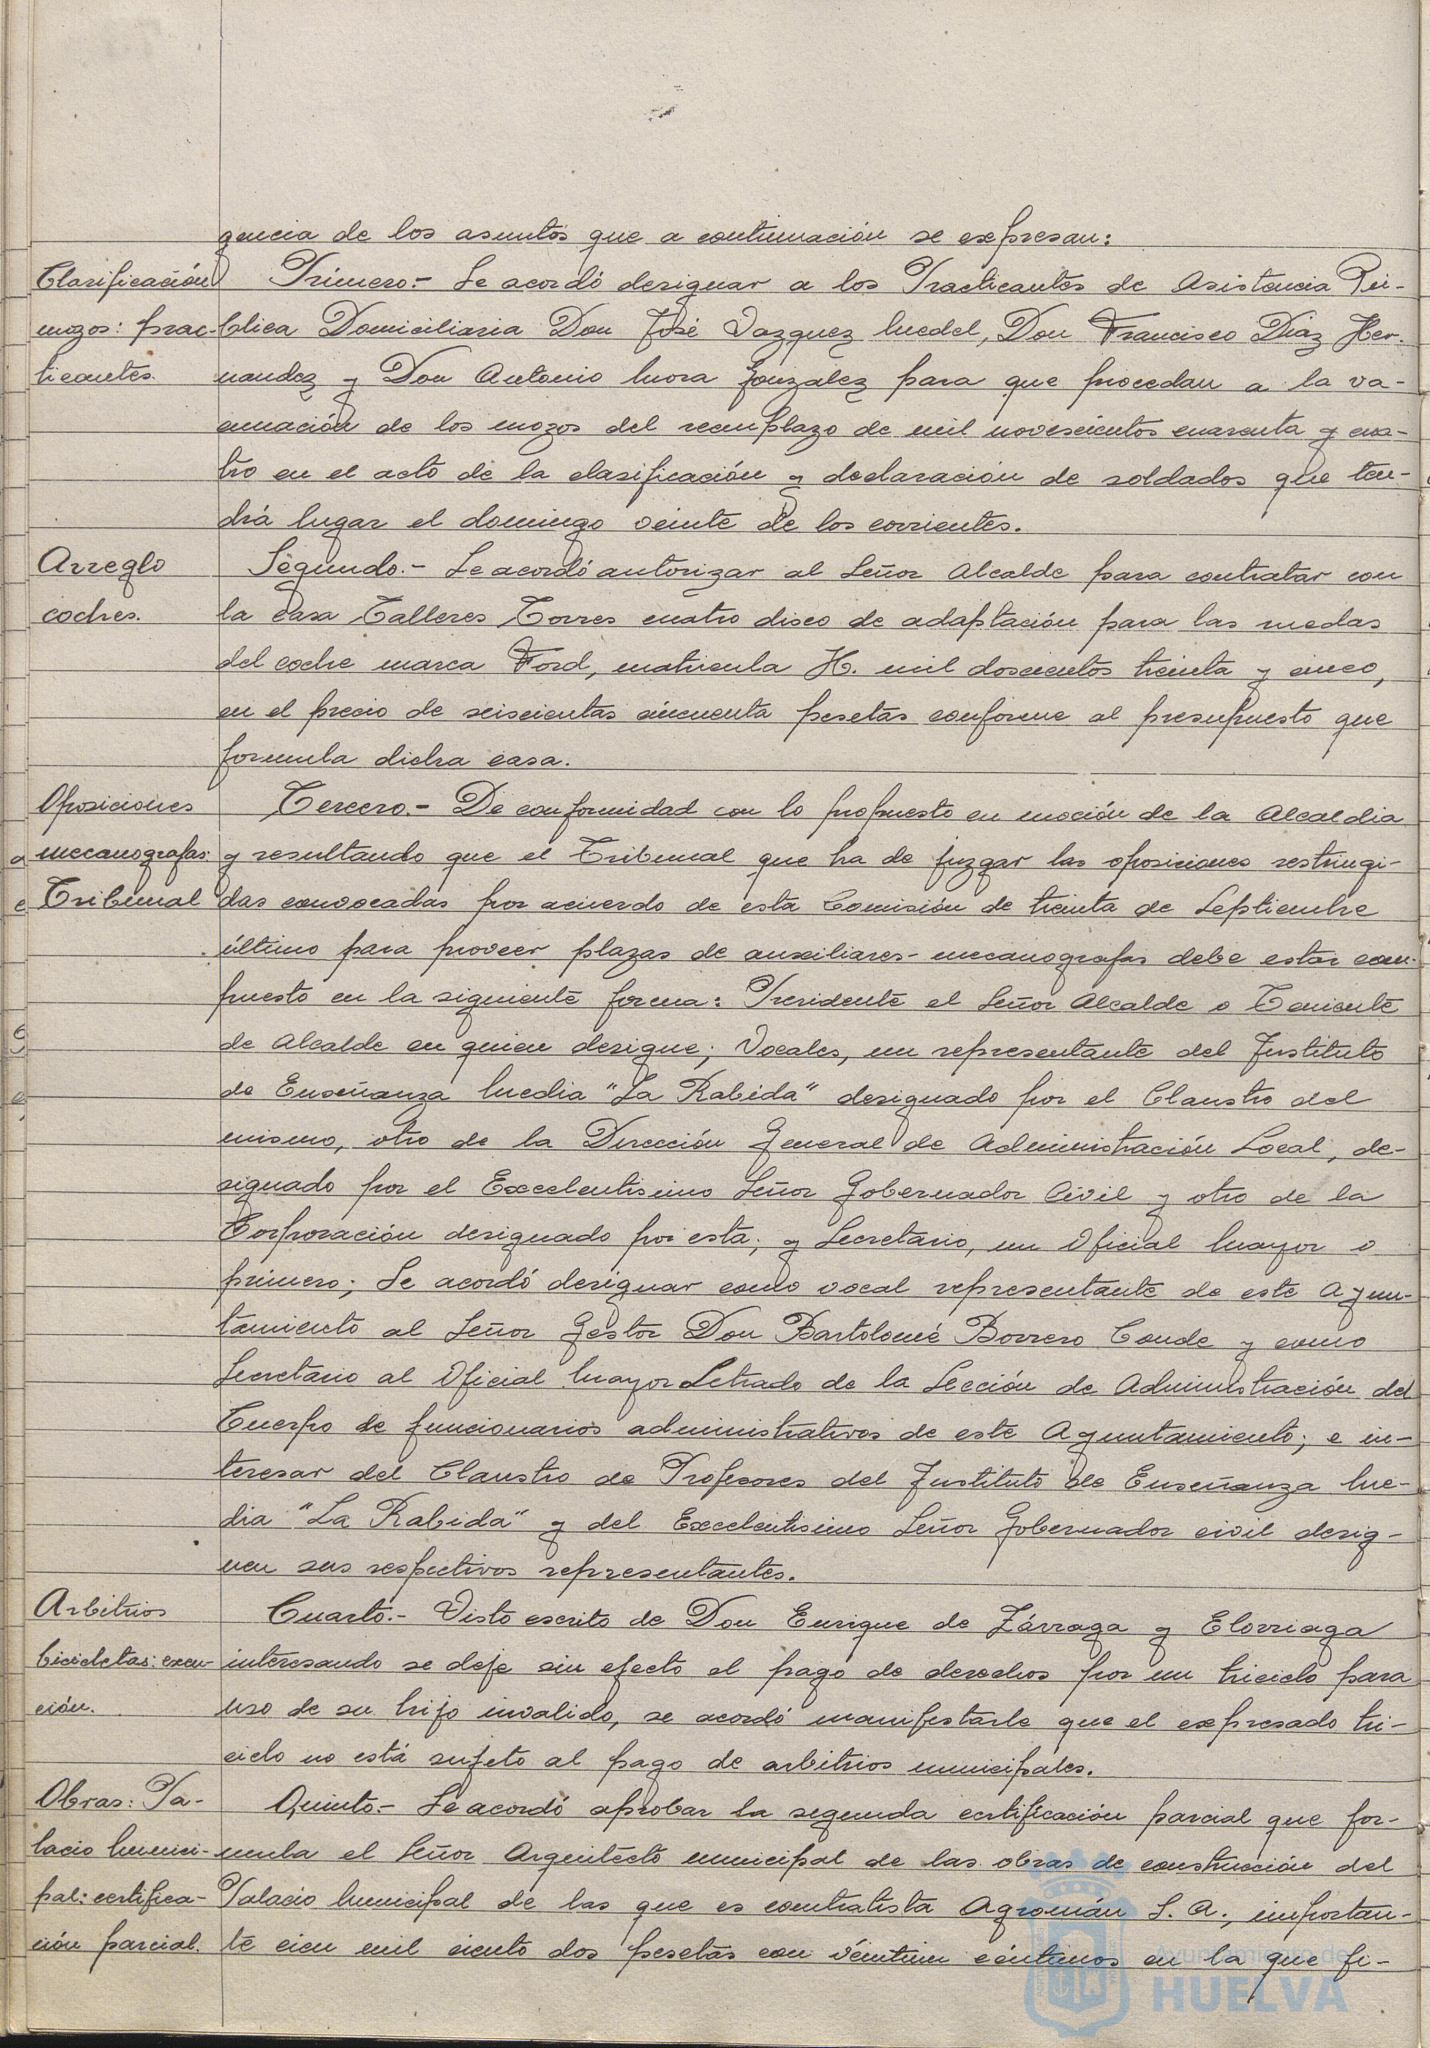 gencia de los asuntos que a continuación se expresan:
Clasificación
mozos: prac-
ticantes.
Primero.- Se acordó designar a los Practicantes de Asistencia Pú-
blica Domiciliaria Don José Vazquez Medel, Don Francisco Díaz Her-
nandez y Don Antonio Mora Gonzalez para que procedan a la va-
cunación de los mozos del reemplazo de mil novecientos cuarenta y cua-
tro en el acto de la clasificación y declaración de soldados que ten-
drá lugar el domingo veinte de los corrientes.
Arreglo
coches.
Segundo.- Se acordó autorizar al Señor Alcalde para contratar con
la casa Talleres Torres cuatro disco de adaptación para las ruedas
del coche marca Ford, matricula H. mil doscientos treinta y cinco,
en el precio de seiscientas cincuenta pesetas conforme al presupuesto que
formula dicha casa.
Oposiciones
mecanografas:
Tribunal
Tercero.- De conformidad con lo propuesto en moción de la Alcaldia
y resultando que el Tribunal que ha de juzgar las oposiciones restringi-
das convocadas por acuerdo de esta Comisión de treinta de Septiembre
último para proveer plazas de auxiliares-mecanografas debe estar com-
puesto en la siguiente forma: Presidente el Señor Alcalde o Teniente
de Alcalde en quien designe; Vocales, un representante del Instituto
de Enseñanza Media "La Rabida" designado por el Claustro del
mismo, otro de la Dirección General de Administración Local, de-
signado por el Excelentisimo Señor Gobernador Civil y otro de la
Corporación designado por esta; y Secretario, un Oficial Mayor o
primero; Se acordó designar como vocal representante de este Ayun-
tamiento al Señor Gestor Don Bartolomé Borrero Conde y como
Secretario al Oficial Mayor Letrado de la Sección de Administración del
Cuerpo de funcionarios administrativos de este Ayuntamiento; e in-
teresar del Claustro de Profesores del Instituto de Enseñanza Me-
dia "La Rabida" y del Excelentisimo Señor Gobernador civil desig-
nen sus respectivos representantes.
Arbitrios
bicicletas: exen-
ción.
Cuarto.- Visto escrito de Don Enrique de Zárraga y Elorriaga
interesando se deje sin efecto el pago de derechos por un triciclo para
uso de su hijo invalido, se acordó manifestarle que el expresado tri-
ciclo no está sujeto al pago de arbitrios municipales.
Obras: Pa-
lacio Munici-
pal: certifica-
ción parcial.
Quinto.- Se acordó aprobar la segunda certificación parcial que for-
mula el Señor Arquitecto municipal de las obras de construcción del
Palacio Municipal de las que es contratista Agromán S. A., importan-
te cien mil ciento dos pesetas con veintiun céntimos en la que fi-
Ayuntamiento de
HUELVA